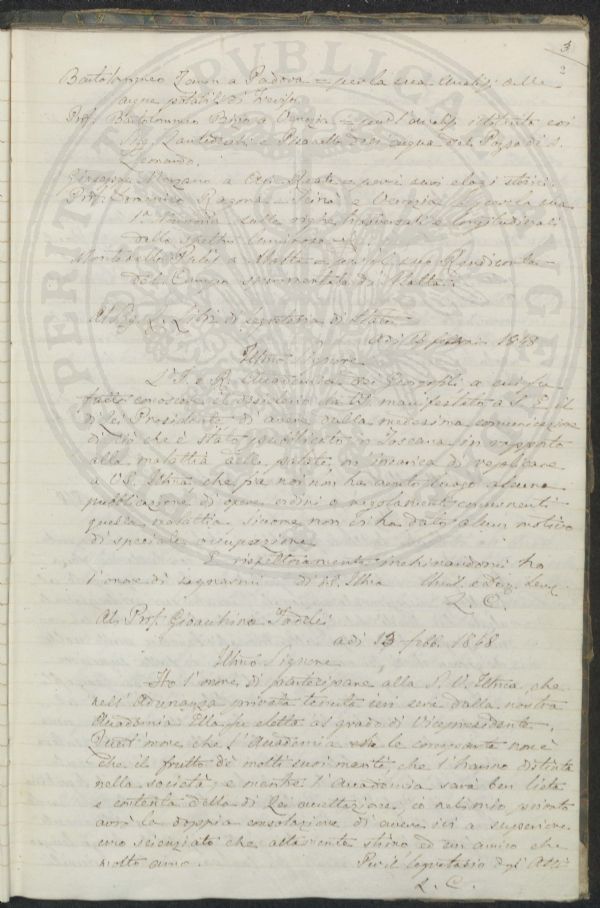 3
2
Bartolommeo Zanon a Padova = per la sua Analisi delle
acque potabili di Treviso.
Prof. Bartolommeo Bizio a Venezia = per l'analisi istituita coi
Sig. Zantedeschi e Pisanello dell'acqua del Pozzo di S.
Leonardo.
Giuseppe a = pei suoi elogi storici.
Prof. Domenico Ragona = Scinà e Venezia per la sua
1a Memoria sulle righe trasversali e longitudinali
dello Spettro luminoso =
a Malta = pel suo Rendiconto
del Campo sperimentale di Malta.
Al Sig. L. di Segreteria di Stato
adi 13 1848
Illmo Signore
L'I. e R. Accademia dei Georgofili a cui fu
fatto conoscere il desiderio da V.S. manifestato a S. E. il
di Lei Presidente di avere dalla medesima comunicazione
di ciò che è stato pubblicato in Toscana in rapporto
alla malattia delle patate, m'incarica di replicare
a V.S. Illma che fra noi non ha avuto luogo alcuna
pubblicazione di opere ordini o regolamenti concernenti
questa malattia, siccome non ci ha dato alcun motivo
di speciale occupazione.
E rispettosamente inchinandomi ho
l'onore di segnarmi di V.S. Illma Umil. e Dev. Serv.
L. C.
Al Prof. Gioacchino Taddei
adi 13 febb. 1848
Illmo Signore
Ho l'onore di partecipare alla S. V. Illma che
nell'Adunanza privata tenuta ieri sera dalla nostra
Accademia Ella fu eletto al grado di Vicepresidente.
Quest'onore che l'Accademia le comparte non è
che il frutto di molti suoi meriti che l'hanno distinta
nella società, e mentre l'Accademia sarà ben lieta
e contenta della di Lei accettazione, io nel mio privato
avrò la doppia consolazione di avere ici a superiore
uno scienziato che altamente stimo ed un amico che
molto amo. Per il Segretario degl'Atti
L. C.